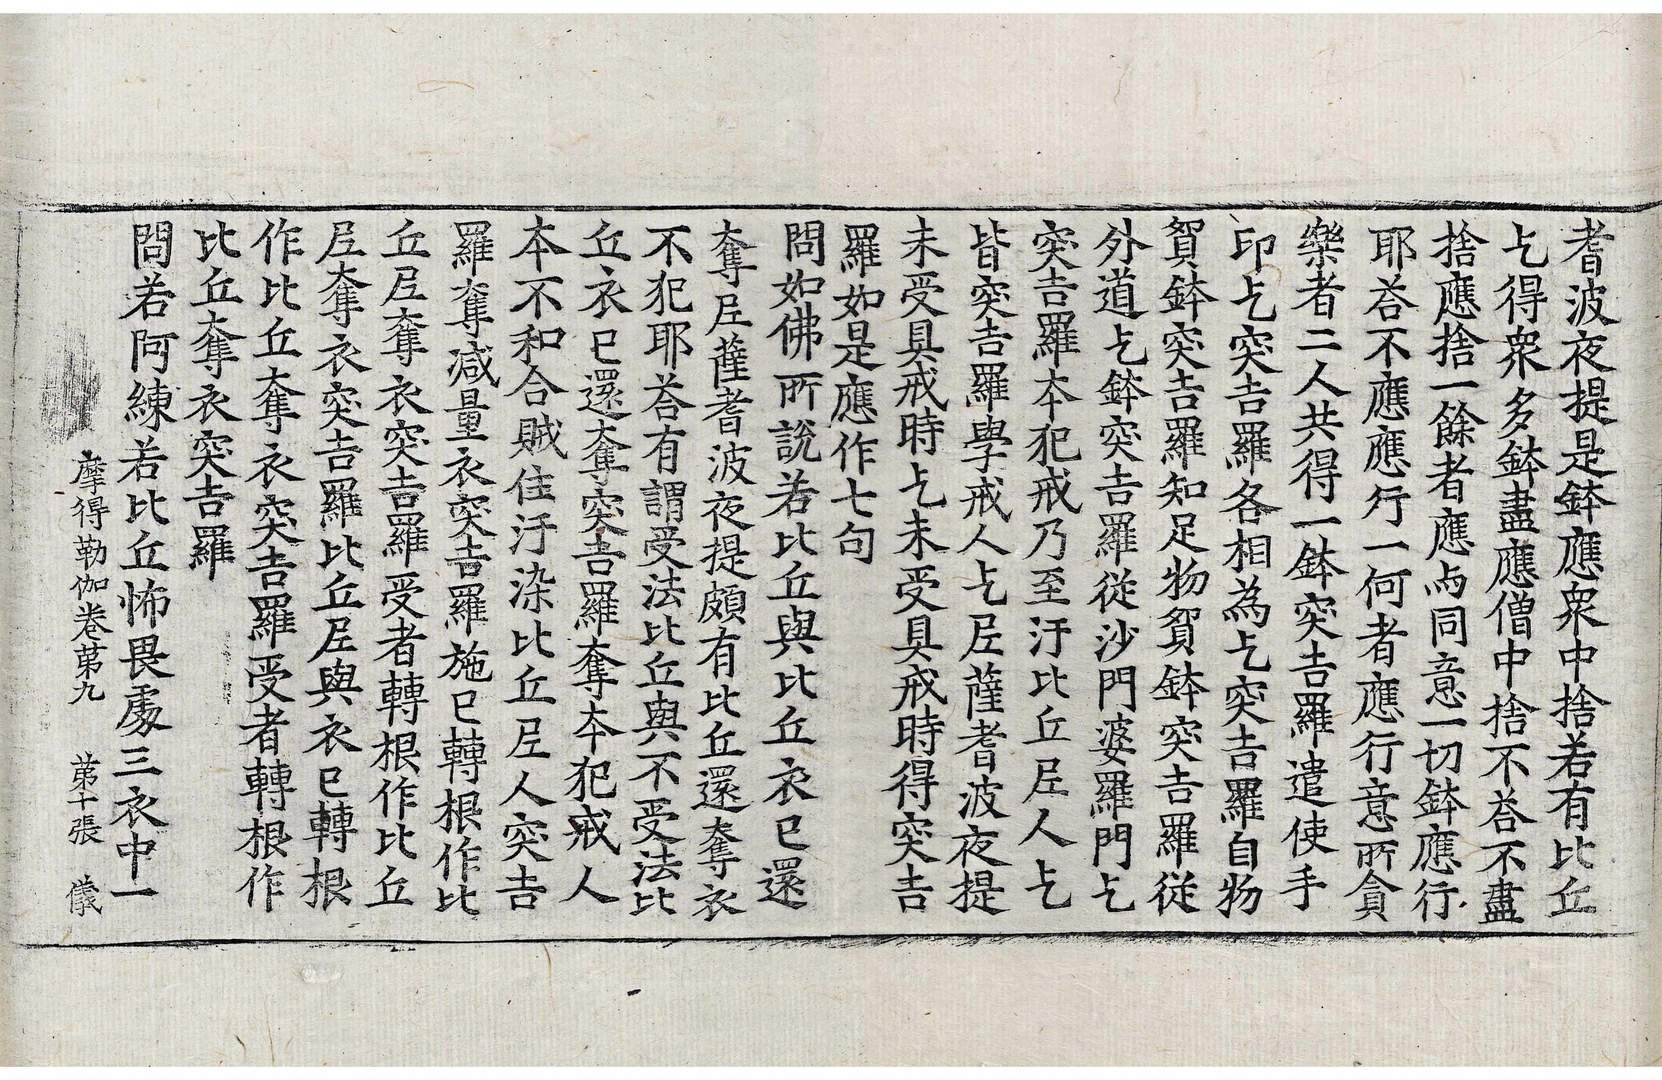 耆波夜提是鉢應衆中捨若有比丘
乞得衆多鉢盡應僧中捨不荅不盡
捨應捨一餘者應与同意一切鉢應行
耶荅不應應行一何者應行意所貪
樂者二人共得一鉢突吉羅遣使手
印乞突吉羅各相為乞突吉羅自物
貿鉢突吉羅知足物貿鉢突吉羅從
外道乞鉢突吉羅從沙門婆羅門乞
突吉羅本犯戒乃至汙比丘尼人乞
皆突吉羅學戒人乞尼薩耆波夜提
未受具戒時乞未受具戒時得突吉
羅如是應作七句
問如佛所說若比丘與比丘衣已還
奪尼薩耆波夜提頗有比丘還奪衣
不犯耶荅有謂受法比丘與不受法比
丘衣已還奪突吉羅奪本犯戒人
本不和合賊住汙染比丘尼人突吉
羅奪減量衣突吉羅施已轉根作比
丘尼奪衣突吉羅受者轉根作比丘
尼奪衣突吉羅比丘尼與衣已轉根
作比丘奪衣突吉羅受者轉根作
比丘奪衣突吉羅
問若阿練若比丘怖畏處三衣中一
摩得勒伽卷第九 第十張 儀